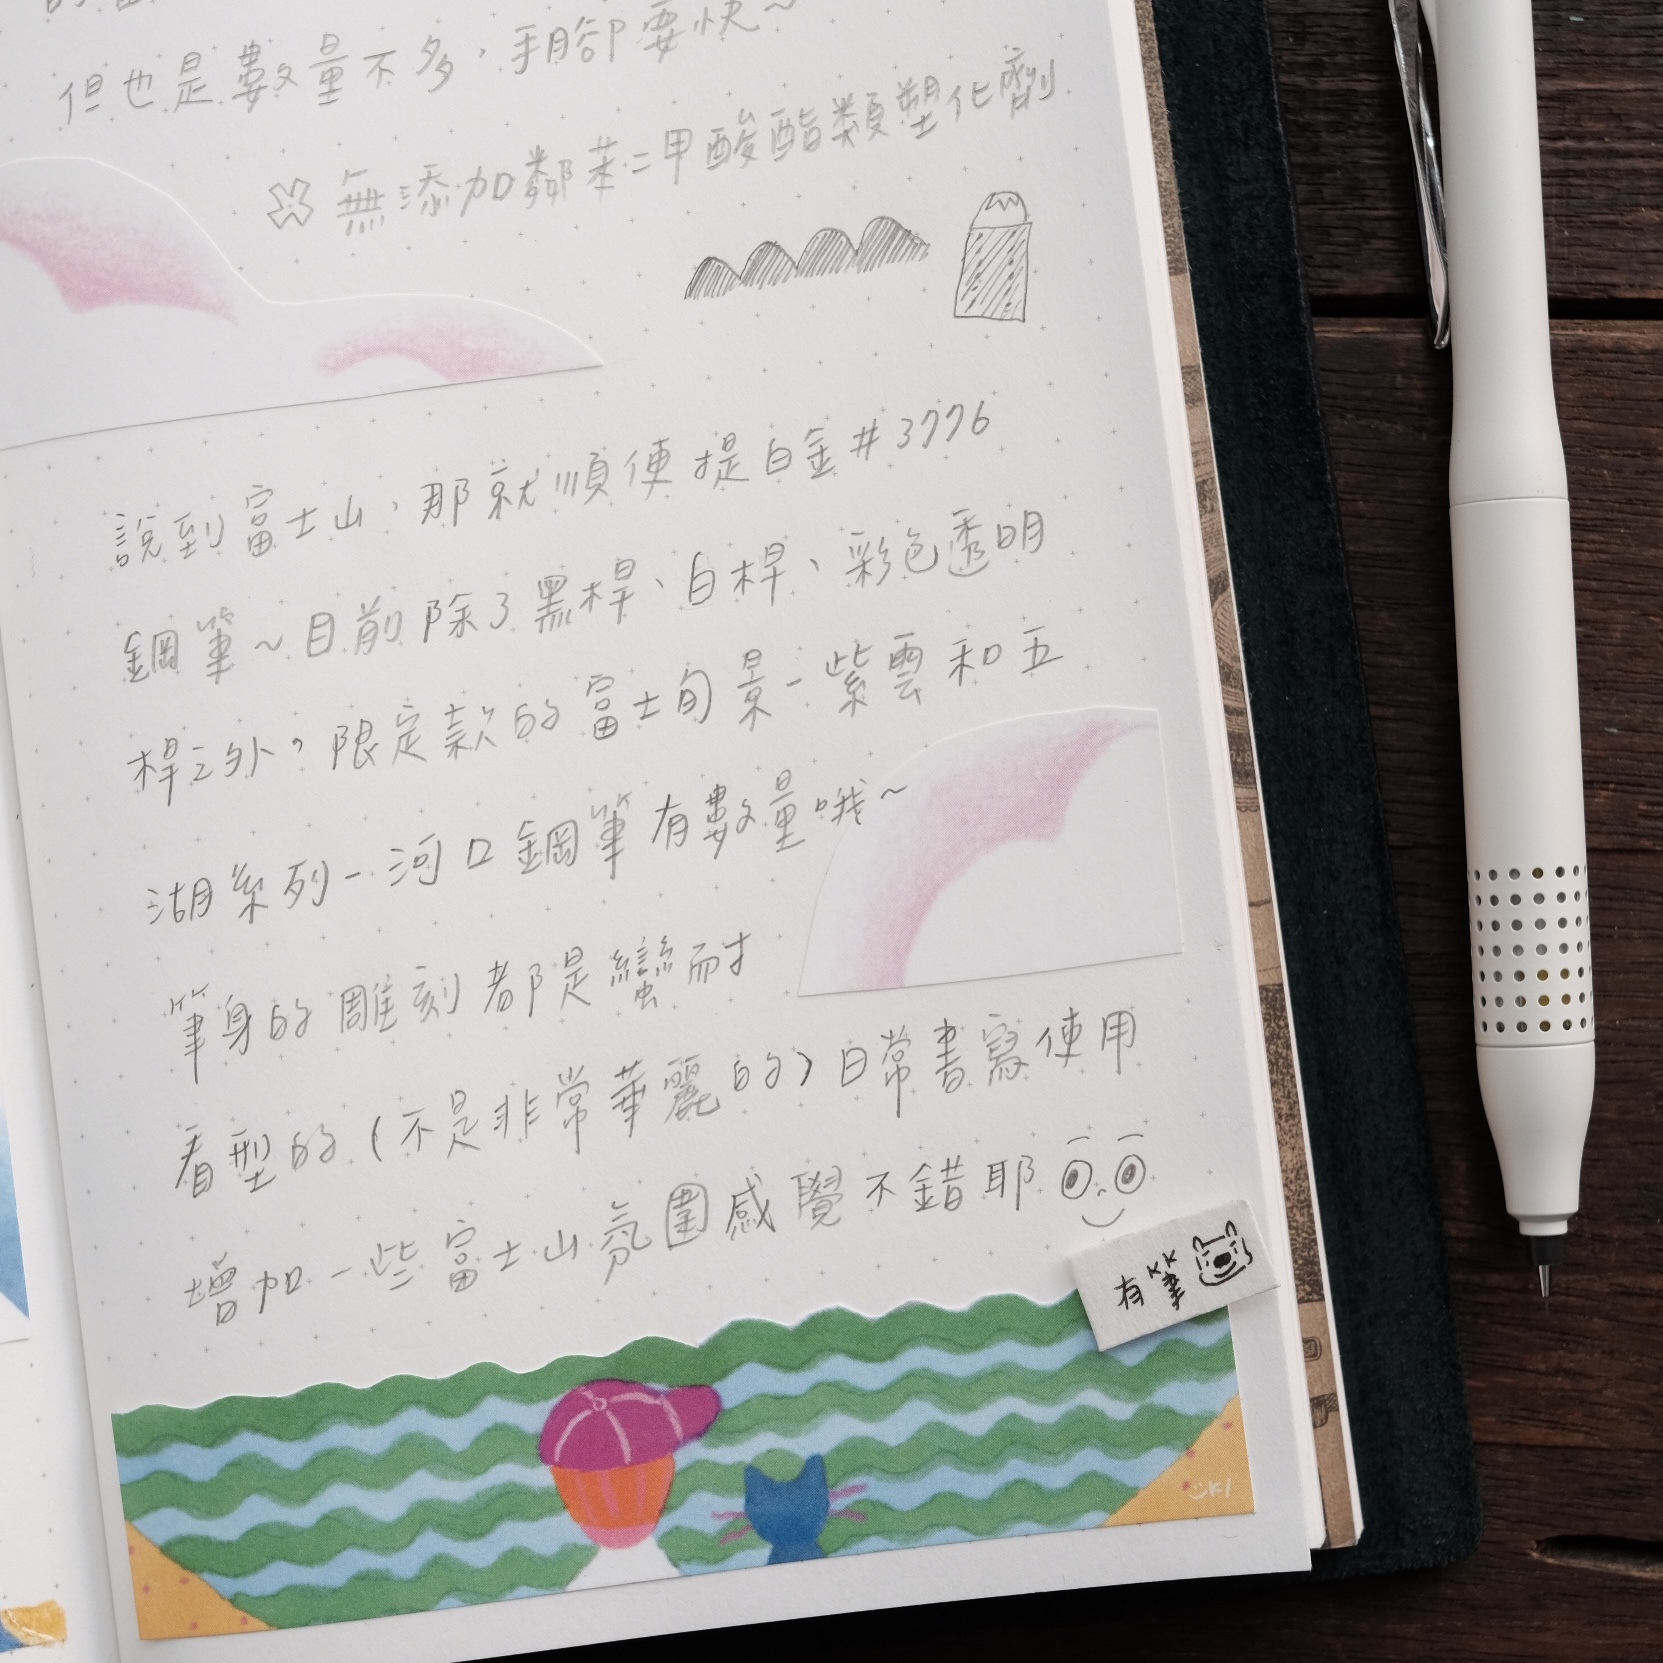 但也是數量不多，手腳要快~
無添加鄰苯二甲酸酯類塑化劑
說到富士山，那就順便提白金#3776
鋼筆~目前除了黑桿、白桿、彩色透明
桿之外，限定款的富士旬景-紫雲和五
湖系列-河口鋼筆有數量哦~
筆身的雕刻都是蠻耐
看型的(不是非常華麗的)日常書寫使用
增加一些富士山氛圍感覺不錯耶
有筆
KI